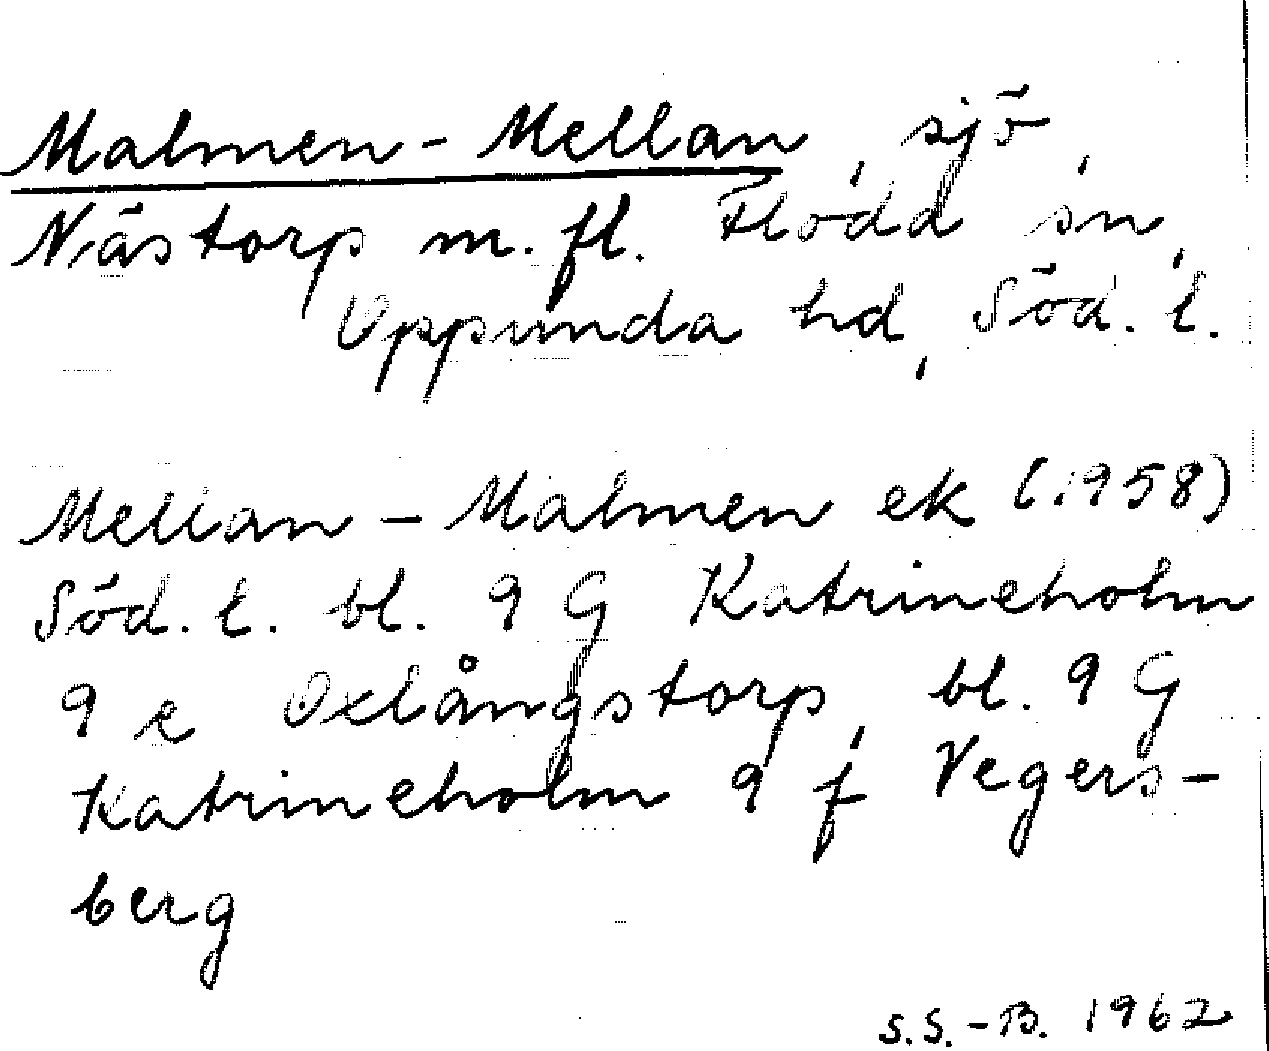 Malmen-Mellan, sjö,
Nästorp m. fl. Flöda sn,
Oppunda hd, Söd. l.
Mellan-Malmen ek (1958)
Söd. l. bl. 9 G Katrineholm
9 e Oxlångstorp, bl. 9 G
Katrineholm 9 f Vegers-
berg
S.S.-B. 1962